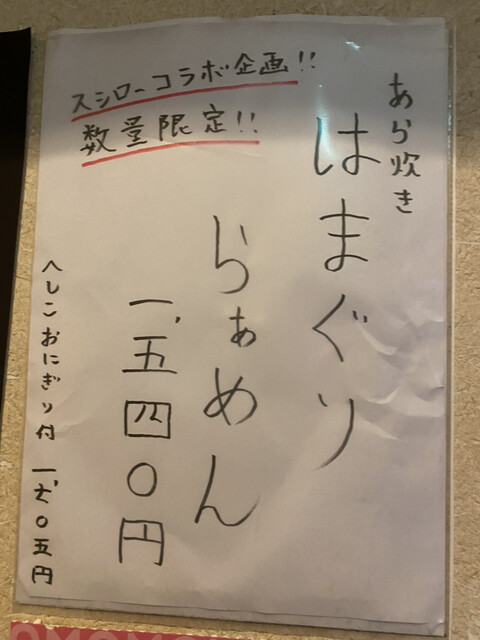 スシローコラボ企画!!
数量限定!!
あら炊き
はまぐり
らぁめん
一、五四〇円
へしこおにぎり付 一、六〇五円